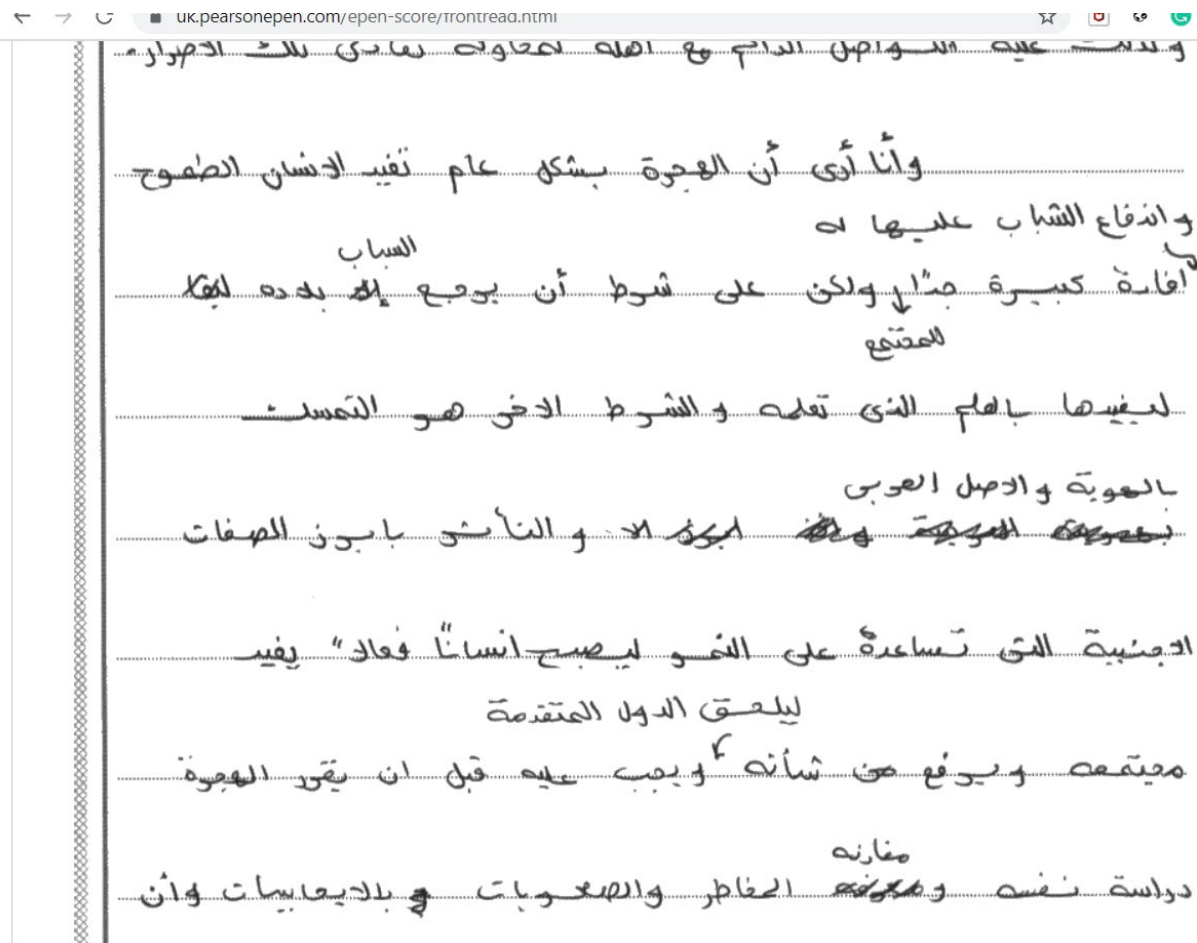 uk.pearsonepen.com/epen-score/frontread.html
التواصل الدائم مع اهله لمحاولة تفادي تلك الاضرار.
وأنا أرى أن الهجرة بشكل عام تفيد الانسان الطموح
واندفاع الشباب عليها له
السباب
افادة كبيرة جدًا ولكن على شرط أن يرجع بلاده
للمجتمع
ليفيدها بالعلم الذى تعلمه والشرط الاخر هو التمسك
بالهوية والاصل العربى
والتأثر بابرز الصفات
الاجنبية التى تساعدة على النمو ليصبح انسانًا فعالا" يفيد
ليلحق الدول المتقدمة
مجتمعه ويرفع من شأنه ويجب عليه قبل ان يقرر الهجرة
مقارنه
دراسة نفسه و المخاطر والصعوبات بالايجابيات وأن